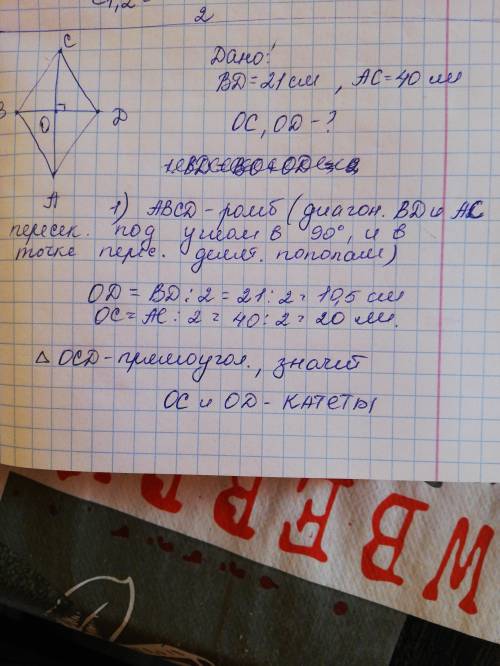 2
C
Дано!
BD = 21 см , AC = 40 см
B
O
D
OC, OD - ?
A
1) ABCD - ромб (диагон. BD и AC
пересек. под углом в 90°, и в
точке перес. делят. пополам)
OD = BD : 2 = 21 : 2 = 10,5 см
OC = AC : 2 = 40 : 2 = 20 см.
△ OCD - прямоугол., значит
OC и OD - КАТЕТЫ
WEBB